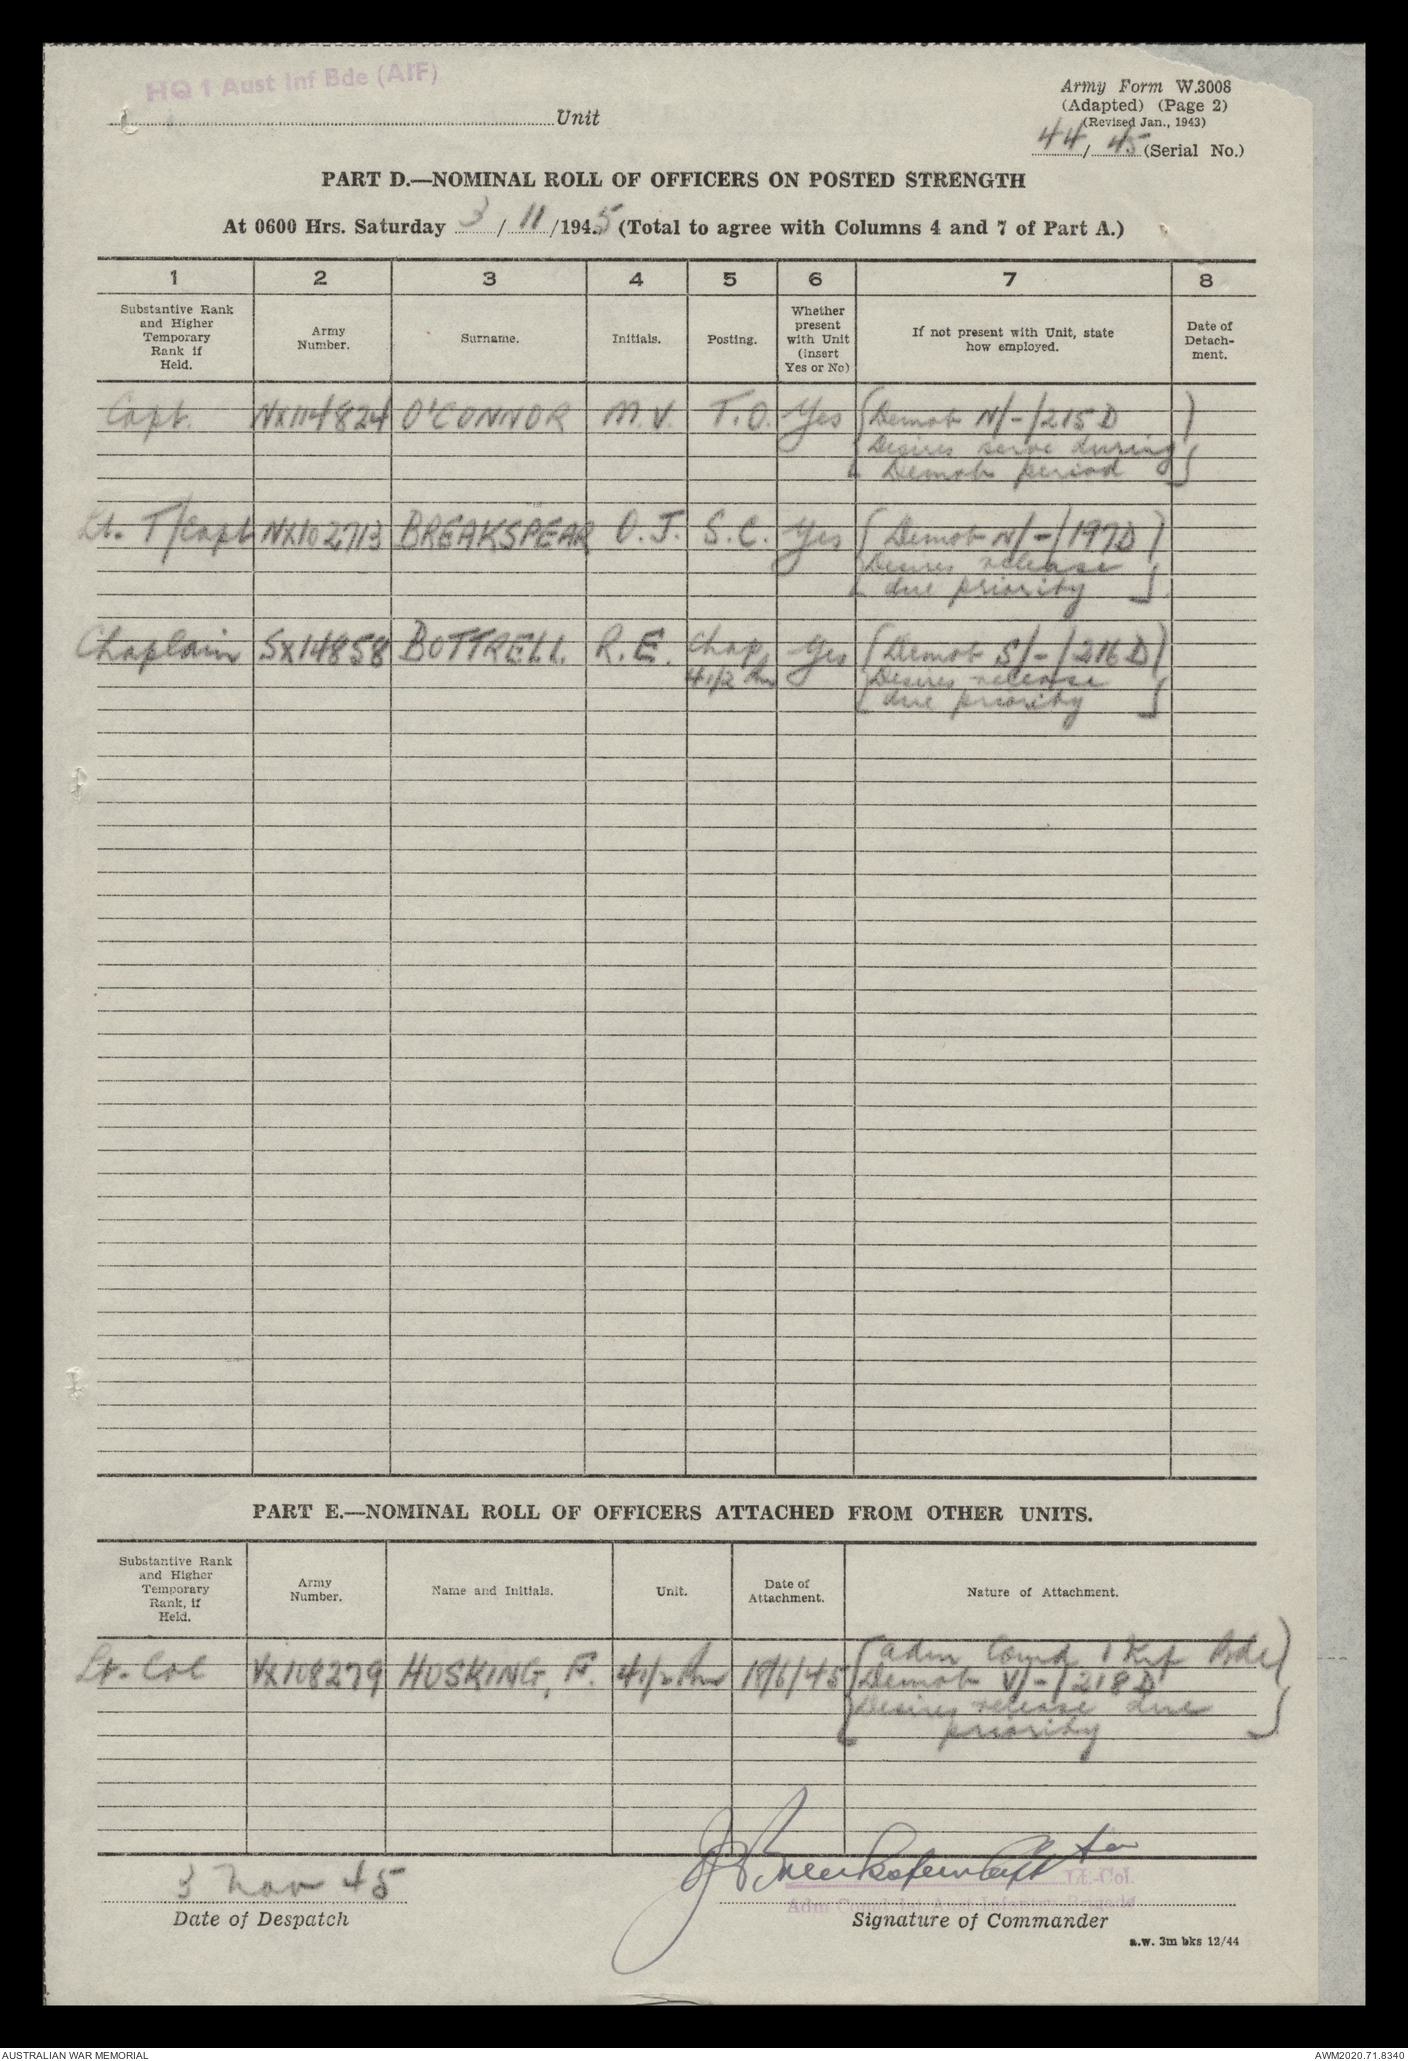 HQ 1 Aust Inf Bde (AIF)
Unit
Army Form W.3008
(Adapted) (Page 2)
(Revised Jan., 1943)
44/45 (Serial No.)
PART D.—NOMINAL ROLL OF OFFICERS ON POSTED STRENGTH
At 0600 Hrs. Saturday 3/11/1945 (Total to agree with Columns 4 and 7 of Part A.)
1 2 3 4 5 6 7 8
Substantive Rank and Higher Temporary Rank if Held.
Army Number.
Surname.
Initials.
Posting.
Whether present with Unit (insert Yes or No)
If not present with Unit, state how employed.
Date of Detach-ment.
Capt. NX114824 O'CONNOR M.V. T.O. Yes (Demob N/-/215D)
Desires serve during
Demob period
Lt. T/Capt NX102713 BREAKSPEAR O.J. S.C. Yes (Demob N/-/197D)
Desires release
due priority
Chaplain SX14858 BOTTRELL R.E. Chap. Yes (Demob S/-/216D)
41/2 Desires release
due priority
PART E.—NOMINAL ROLL OF OFFICERS ATTACHED FROM OTHER UNITS.
Substantive Rank and Higher Temporary Rank, if Held.
Army Number.
Name and Initials.
Unit.
Date of Attachment.
Nature of Attachment.
Adm Comd 1 Inf Bde
Lt-Col VX108279 HOSKING, F. 41/2 18/6/45 Demob V/-/218D
Desires release due
priority
Capt for
Lt.-Col.
Adm Comd 1st Aust Infantry Brigade
3 Nov 45
Date of Despatch
Signature of Commander
a.w. 3m bks 12/44
AUSTRALIAN WAR MEMORIAL
AWM2020.71.8340